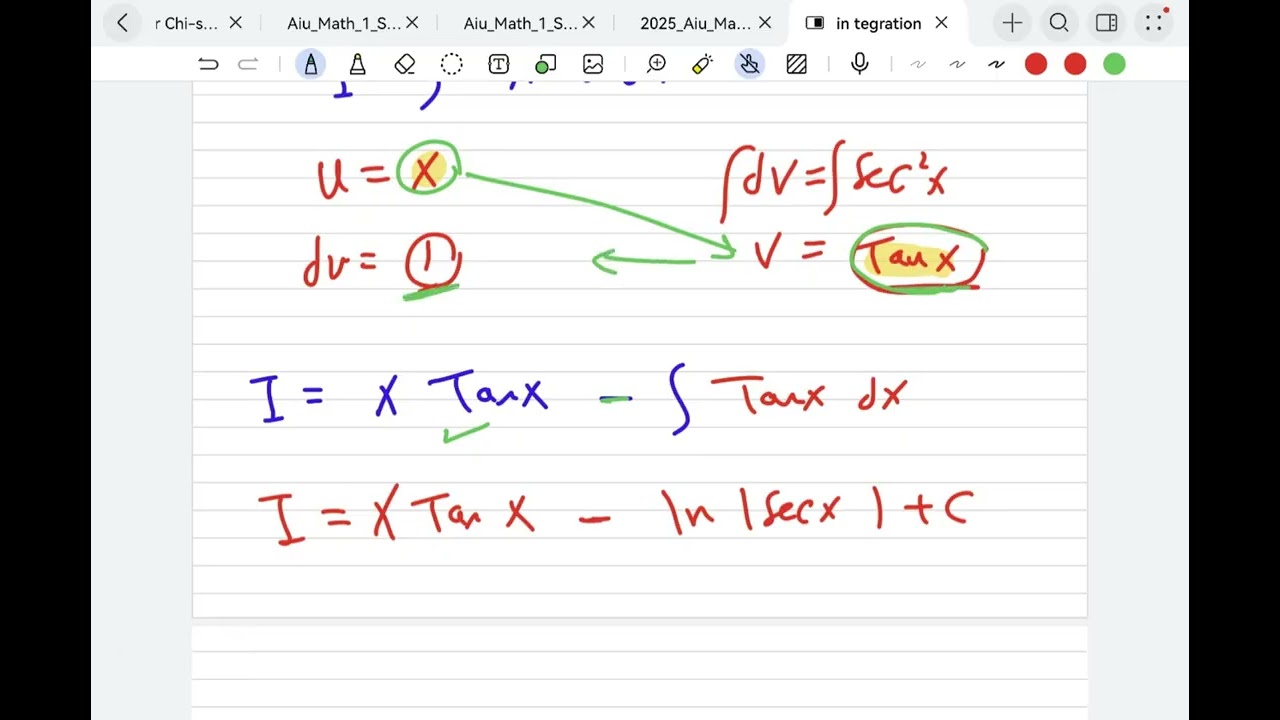 r Chi-s... Aiu_Math_1_S... Aiu_Math_1_S... 2025_Aiu_Ma... in tegration
u = x ∫dv = ∫sec²x
dv = 1 v = Tan x
I = x Tanx - ∫ Tanx dx
I = x Tan x - ln |secx| + c